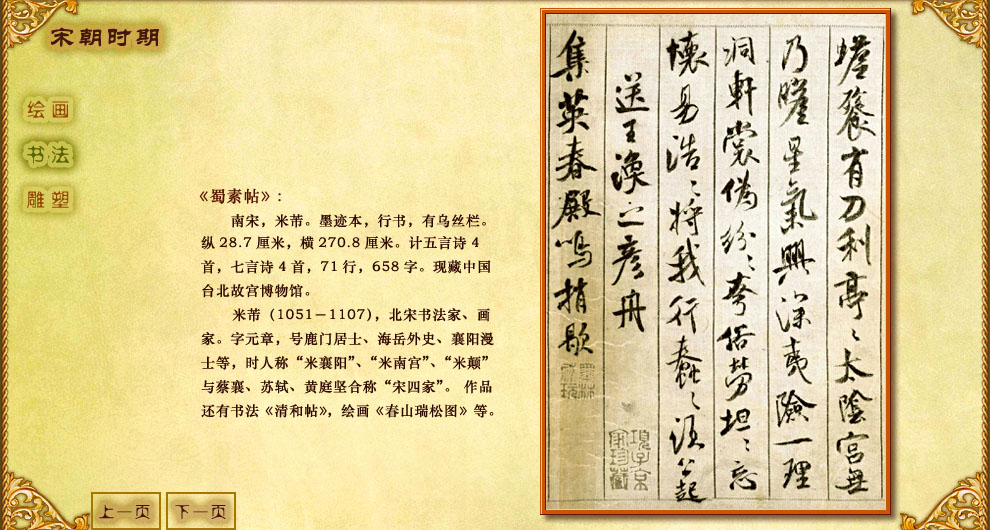 宋朝时期
绘画
书法
雕塑
《蜀素帖》:
南宋,米芾。墨迹本,行书,有乌丝栏。
纵 28.7 厘米,横 270.8 厘米。计五言诗 4
首,七言诗 4 首,71 行,658 字。现藏中国
台北故宫博物馆。
米芾(1051－1107),北宋书法家、画
家。字元章,号鹿门居士、海岳外史、襄阳漫
士等,时人称“米襄阳”、“米南宫”、“米颠”
与蔡襄、苏轼、黄庭坚合称“宋四家”。 作品
还有书法《清和帖》,绘画《春山瑞松图》等。
蟾餮有刀利亭〻太陰宮無
乃瞻星氣興深夷險一理
洞軒裳偽紛〻夸俗勞坦〻忘
懷易浩〻將我行蠢〻須公起
送王渙之彥舟
集英春殿鳴捎歇
項子京
家珍藏
上一页
下一页